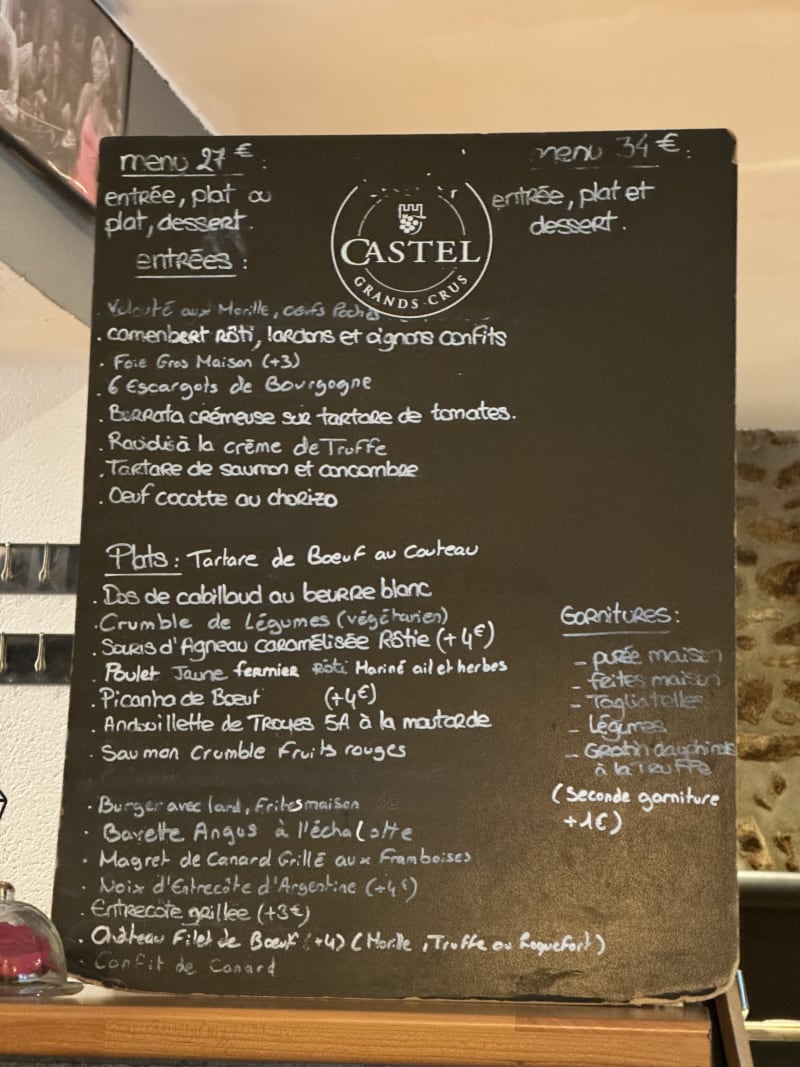 menu 27 €:
entrée, plat ou
plat, dessert.
menu 34 €:
entrée, plat et
dessert.
CASTEL
GRANDS CRUS
entrées :
. Velouté aux Morille, oeufs Pochés
. camenbert Rôti, lardons et oignons confits
. Foie Gros Maison (+3)
. 6 Escargots de Bourgogne
. Burrata crémeuse sur tartare de tomates.
. Raviolis à la crème de Truffe
. Tartare de saumon et concombre
. Oeuf cocotte au chorizo
Plats : Tartare de Boeuf au Couteau
. Dos de cabillaud au beurre blanc
. Crumble de Légumes (végétarien)
. Souris d'Agneau caramélisée Rôtie (+4€)
. Poulet Jaune fermier Rôti Mariné ail et herbes
. Picanha de Boeuf (+4€)
. Andouillette de Troyes 5A à la moutarde
. Saumon Crumble Fruits rouges
. Burger avec lard, Frites maison
. Bavette Angus à l'échalotte
. Magret de Canard Grillé aux Framboises
. Noix d'Entrecôte d'Argentine (+4€)
. Entrecote grillee (+3€)
. Château Filet de Boeuf (+4) (Morille, Truffe ou Roquefort)
. Confit de Canard
Garnitures :
- purée maison
- frites maison
- Tagliatelles
- Légumes
- Gratin dauphinois
à la Truffe
(Seconde garniture
+1€)